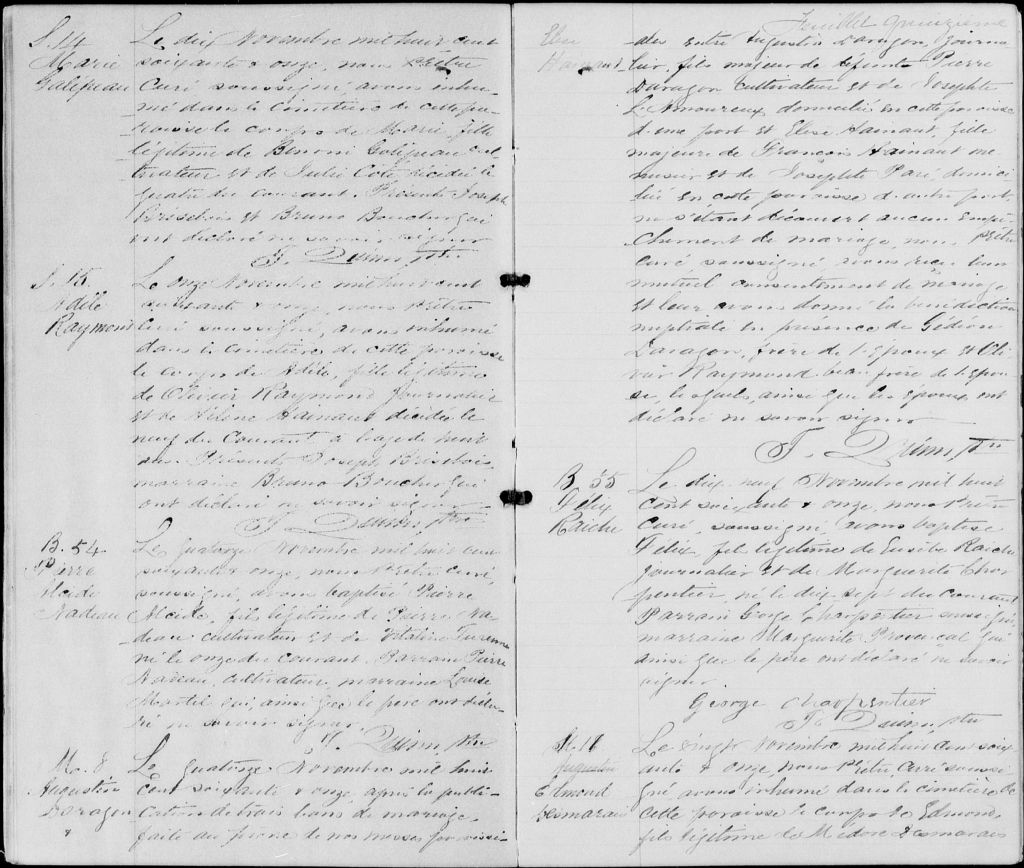 S. 14
Marie
Galipeau
Le dix Novembre mil huit cent
soixante & onze, nous Prêtre
Curé soussigné, avons inhu-
mé dans le Cimetière de cette pa-
roisse le corps de Marie fille
légitime de Benoni Galipeau cul-
tivateur et de Julie Coté décédée le
quatre du courant. Présents Joseph
Brisebois et Bruno Boucher qui
ont déclaré ne savoir signer
J. Quinn, Ptre
S. 15.
Adèle
Raymond
Le onze Novembre mil huit cent
soixante & onze, nous Prêtre
Curé soussigné, avons inhumé
dans le cimetière de cette paroisse
le corps de Adèle, fille légitime
de Olivier Raymond Journalier
et de Hélène Hainaut décédée le
neuf du Courant à l'age de huit
ans. Présents Joseph Brisebois
marraine Bruno Boucher qui
ont déclaré ne savoir signer
J. Quinn, Ptre
B. 54
Pierre
Alcide
Nadeau
Le quatorze Novembre mil huit cent
soixante & onze, nous Prêtre curé,
soussigné, avons baptisé Pierre
Alcide, fils légitime de Pierre Na-
deau cultivateur et de Turenne
né le onze du courant. Parrain Pierre
Nadeau, cultivateur, marraine Louise
Martel qui, ainsi que le père ont décla-
ré ne savoir signer.
J. Quinn, Ptre
M. 8
Augustin
Daragon
&
Le quatorze Novembre mil huit
Cent soixante & onze, après la publi-
cation de trois bans de mariage
faite au prône de nos messes paroissi-
Feuillet quinzième
Elise
Hainaut
ales entre Augustin Daragon, journa-
lier, fils majeur de défunt Pierre
Daragon cultivateur et de Josephte
LeAmoureux domiciliés en cette paroisse
d'une part et Elise Hainaut, fille
majeure de François Hainaut me-
nuisier et de Josephte Paré domici-
liée en cette paroisse d'autre part
ne s'étant découvert aucun empê-
chement de mariage, nous Prêtre
curé soussigné avons reçu leur
mutuel consentement de mariage
et leur avons donné la bénédiction
nuptiale en présence de Gédéon
Daragon, frère de l'époux et Oli-
vier Raymond beau frère de l'épou-
se, lesquels, ainsi que les époux, ont
déclaré ne savoir signer
J. Quinn, Ptre
B. 55
Félix
Raiche
Le dix neuf Novembre mil huit
Cent soixante & onze, nous Prêtre
Curé, soussigné, avons baptisé
Félix, fils légitime de Eusèbe Raiche
journalier et de Marguerite Char-
pentier, né le dix sept du courant
Parrain George Charpentier soussigné,
marraine Marguerite Provençal qui
ainsi que le père ont déclaré ne savoir
signer
George Charpentier
J. Quinn, Ptre
Augustin
Edmond
Desmarais
Le vingt Novembre mil huit cent soix-
ante & onze, nous Prêtre, Curé soussi-
gné avons inhumé dans le cimetière de
cette paroisse le corps de Edmond,
fils légitime de Médore Desmarais